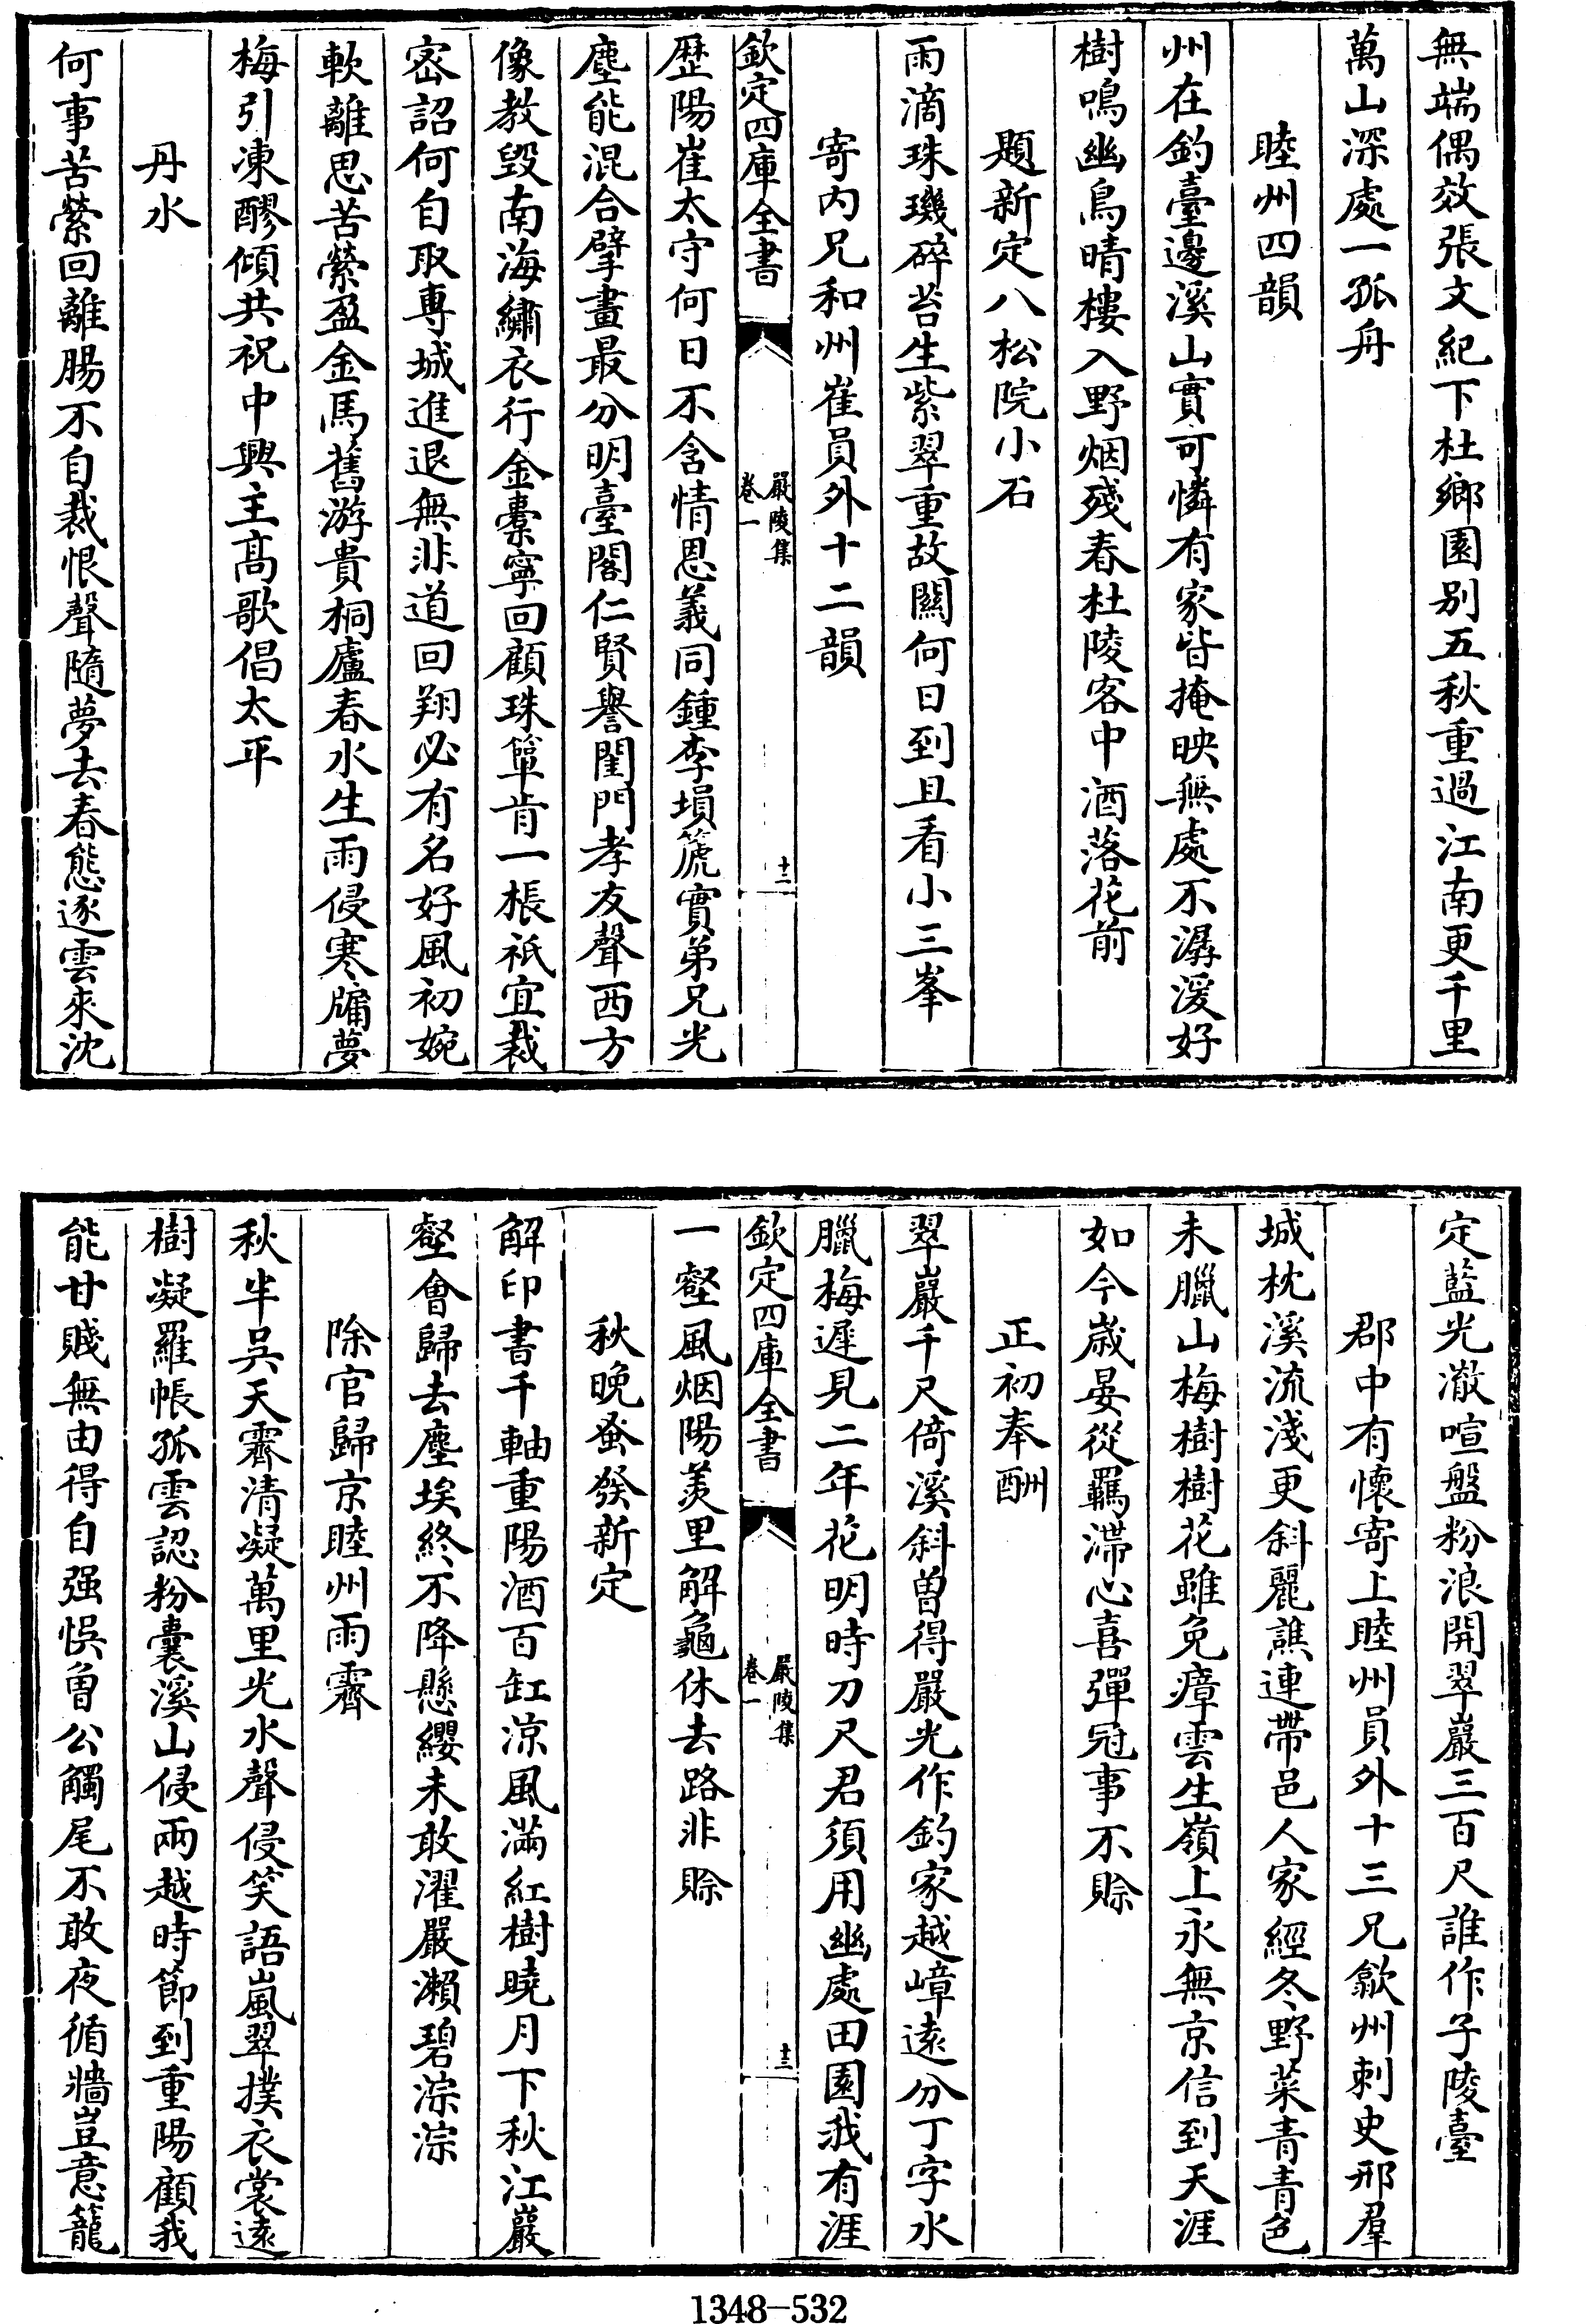 無端偶效張文紀下杜鄉園别五秋重過江南更千里
萬山深處一孤舟
睦州四韻
州在釣臺邊溪山實可憐有家皆掩映無處不潺湲好
樹鳴幽鳥晴樓入野烟殘春杜陵客中酒落花前
題新定八松院小石
雨滴珠璣碎苔生紫翠重故關何日到且看小三峯
寄内兄和州崔員外十二韻
欽定四庫全書
嚴陵集
卷一
十二
歴陽崔太守何日不含情恩義同鍾李塤篪實弟兄光
塵能混合擘畫最分明臺閣仁賢譽閨門孝友聲西方
像教毀南海繡衣行金橐寧回顧珠簞肯一棖祇宜裁
密詔何自取專城進退無非道回翔必有名好風初婉
軟離思苦縈盈金馬舊游貴桐廬春水生雨侵寒牖夢
梅引凍醪傾共祝中興主高歌倡太平
丹水
何事苦縈回離腸不自裁恨聲隨夢去春態逐雲來沈
定藍光澈喧盤粉浪開翠巖三百尺誰作子陵臺
郡中有懷寄上睦州員外十三兄歙州刺史邢羣
城枕溪流淺更斜麗譙連帶邑人家經冬野菜青青色
未臘山梅樹樹花雖免瘴雲生嶺上永無京信到天涯
如今歲晏從羈滯心喜彈冠事不賒
正初奉酬
翠巖千尺倚溪斜曽得嚴光作釣家越嶂遠分丁字水
臘梅遲見二年花明時刀尺君須用幽處田園我有涯
欽定四庫全書
嚴陵集
卷一
十三
一壑風烟陽羨里解龜休去路非賒
秋晚蚤發新定
解印書千軸重陽酒百缸涼風滿紅樹曉月下秋江巖
壑會歸去塵埃終不降懸纓未敢濯嚴瀨碧淙淙
除官歸京睦州雨霽
秋半吳天霽清凝萬里光水聲侵笑語嵐翠撲衣裳遠
樹凝羅帳孤雲認粉囊溪山侵兩越時節到重陽顧我
能甘賤無由得自强悞曽公觸尾不敢夜循牆豈意籠
1348-532